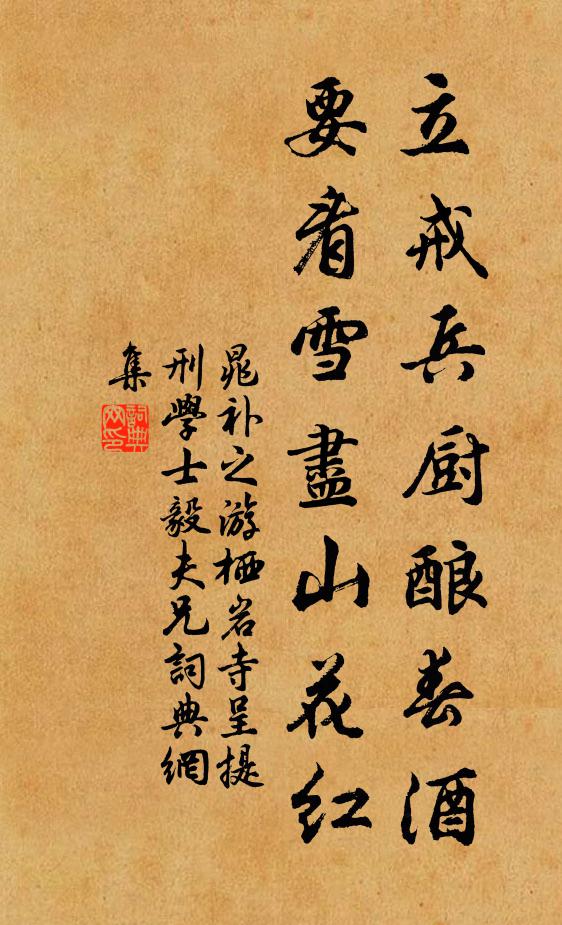 立戒兵厨酿春酒
要看雪盡山花红
晁补之游栖岩寺呈提
刑學士毅夫兄詞典網
集
詞典
网印